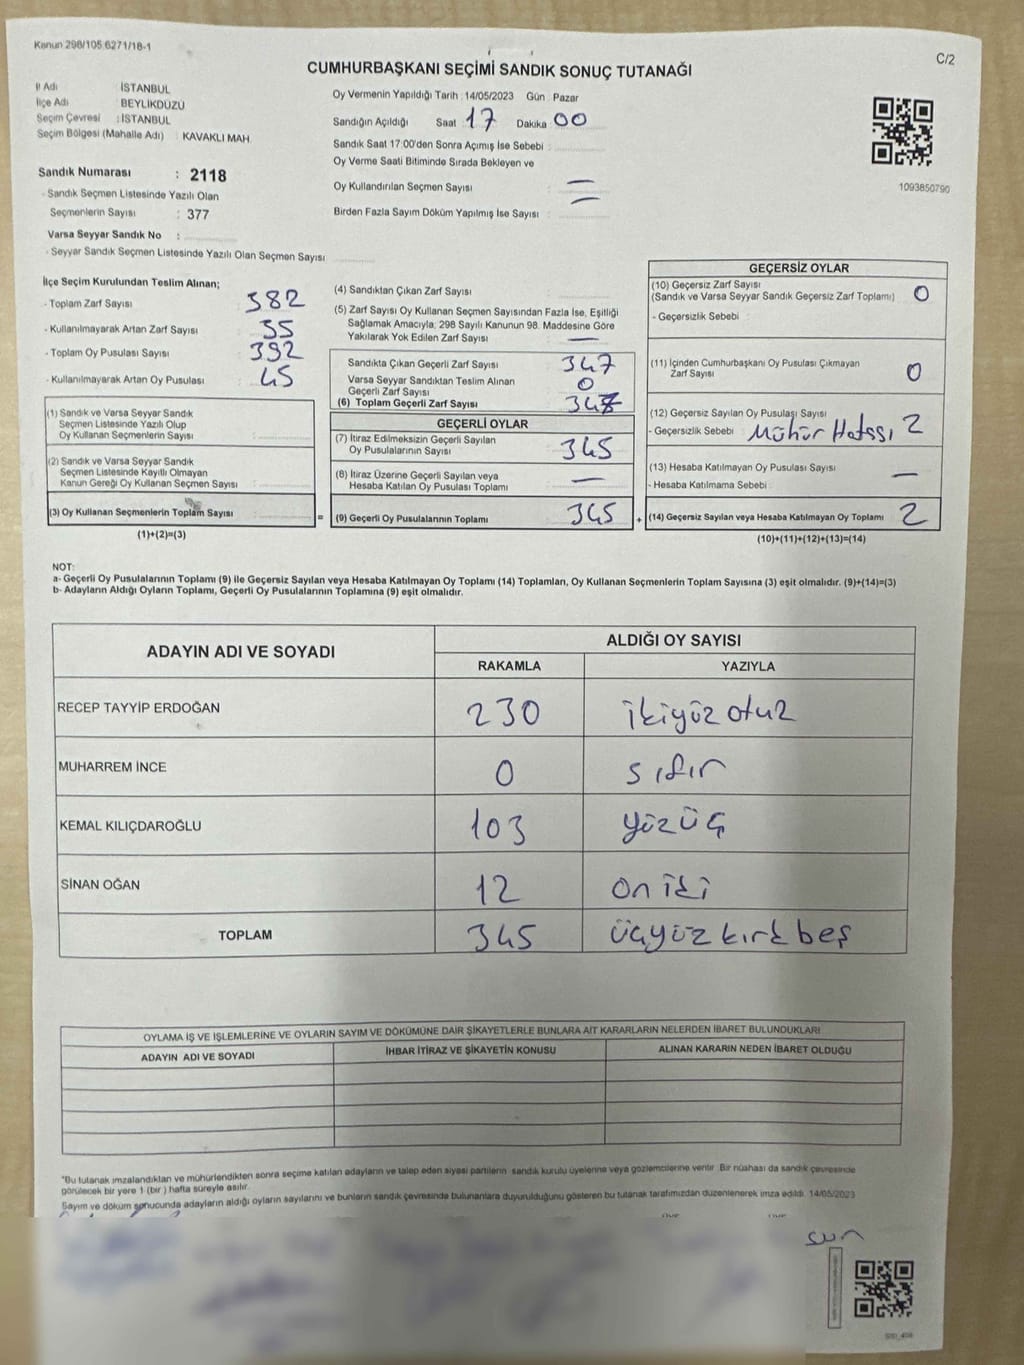 Kanun 298/105 6271/18-1
C/2
CUMHURBAŞKANI SEÇİMİ SANDIK SONUÇ TUTANAĞI
İl Adı İSTANBUL
İlçe Adı BEYLİKDÜZÜ
Seçim Çevresi : İSTANBUL
Seçim Bölgesi (Mahalle Adı) : KAVAKLI MAH.
Sandık Numarası : 2118
- Sandık Seçmen Listesinde Yazılı Olan
Seçmenlerin Sayısı : 377
Varsa Seyyar Sandık No :
- Seyyar Sandık Seçmen Listesinde Yazılı Olan Seçmen Sayısı
Oy Vermenin Yapıldığı Tarih : 14/05/2023 Gün : Pazar
Sandığın Açıldığı Saat 17 Dakika 00
Sandık Saat 17:00'den Sonra Açımış İse Sebebi :
Oy Verme Saati Bitiminde Sırada Bekleyen ve
Oy Kullandırılan Seçmen Sayısı : —
Birden Fazla Sayım Döküm Yapılmış İse Sayısı : —
1093850790
İlçe Seçim Kurulundan Teslim Alınan;
- Toplam Zarf Sayısı 382
- Kullanılmayarak Artan Zarf Sayısı 35
- Toplam Oy Pusulası Sayısı 392
- Kullanılmayarak Artan Oy Pusulası 45
(1) Sandık ve Varsa Seyyar Sandık
Seçmen Listesinde Yazılı Olup
Oy Kullanan Seçmenlerin Sayısı :
(2) Sandık ve Varsa Seyyar Sandık
Seçmen Listesinde Kayıtlı Olmayan
Kanun Gereği Oy Kullanan Seçmen Sayısı :
(3) Oy Kullanan Seçmenlerin Toplam Sayısı =
(1)+(2)=(3)
(4) Sandıktan Çıkan Zarf Sayısı :
(5) Zarf Sayısı Oy Kullanan Seçmen Sayısından Fazla İse, Eşitliği
Sağlamak Amacıyla; 298 Sayılı Kanunun 98. Maddesine Göre
Yakılarak Yok Edilen Zarf Sayısı : —
Sandıkta Çıkan Geçerli Zarf Sayısı 347
Varsa Seyyar Sandıktan Teslim Alınan
Geçerli Zarf Sayısı 0
(6) Toplam Geçerli Zarf Sayısı 347
GEÇERLİ OYLAR
(7) İtiraz Edilmeksizin Geçerli Sayılan
Oy Pusulalarının Sayısı 345
(8) İtiraz Üzerine Geçerli Sayılan veya
Hesaba Katılan Oy Pusulası Toplamı : —
(9) Geçerli Oy Pusulalarının Toplamı 345 +
GEÇERSİZ OYLAR
(10) Geçersiz Zarf Sayısı
(Sandık ve Varsa Seyyar Sandık Geçersiz Zarf Toplamı) 0
- Geçersizlik Sebebi :
(11) İçinden Cumhurbaşkanı Oy Pusulası Çıkmayan
Zarf Sayısı 0
(12) Geçersiz Sayılan Oy Pusulası Sayısı
- Geçersizlik Sebebi Mühür Hatası 2
(13) Hesaba Katılmayan Oy Pusulası Sayısı —
- Hesaba Katılmama Sebebi :
(14) Geçersiz Sayılan veya Hesaba Katılmayan Oy Toplamı 2
(10)+(11)+(12)+(13)=(14)
NOT:
a- Geçerli Oy Pusulalarının Toplamı (9) ile Geçersiz Sayılan veya Hesaba Katılmayan Oy Toplamı (14) Toplamları, Oy Kullanan Seçmenlerin Toplam Sayısına (3) eşit olmalıdır. (9)+(14)=(3)
b- Adayların Aldığı Oyların Toplamı, Geçerli Oy Pusulalarının Toplamına (9) eşit olmalıdır.
ADAYIN ADI VE SOYADI
ALDIĞI OY SAYISI
RAKAMLA YAZIYLA
RECEP TAYYİP ERDOĞAN 230 ikiyüz otuz
MUHARREM İNCE 0 sıfır
KEMAL KILIÇDAROĞLU 103 yüzüç
SİNAN OĞAN 12 on iki
TOPLAM 345 üçyüz kırk beş
OYLAMA İŞ VE İŞLEMLERİNE VE OYLARIN SAYIM VE DÖKÜMÜNE DAİR ŞİKAYETLERLE BUNLARA AİT KARARLARIN NELERDEN İBARET BULUNDUKLARI
ADAYIN ADI VE SOYADI İHBAR İTİRAZ VE ŞİKAYETİN KONUSU ALINAN KARARIN NEDEN İBARET OLDUĞU
"Bu tutanak imzalandıktan ve mühürlendikten sonra seçime katılan adayların ve talep eden siyasi partilerin sandık kurulu üyelerine veya gözlemcilerine verilir. Bir nüshası da sandık çevresinde
görülecek bir yere 1 (bir ) hafta süreyle asılır.
Sayım ve döküm sonucunda adayların aldığı oyların sayılarını ve bunların sandık çevresinde bulunanlara duyurulduğunu gösteren bu tutanak tarafımızdan düzenlenerek imza edildi. 14/05/2023